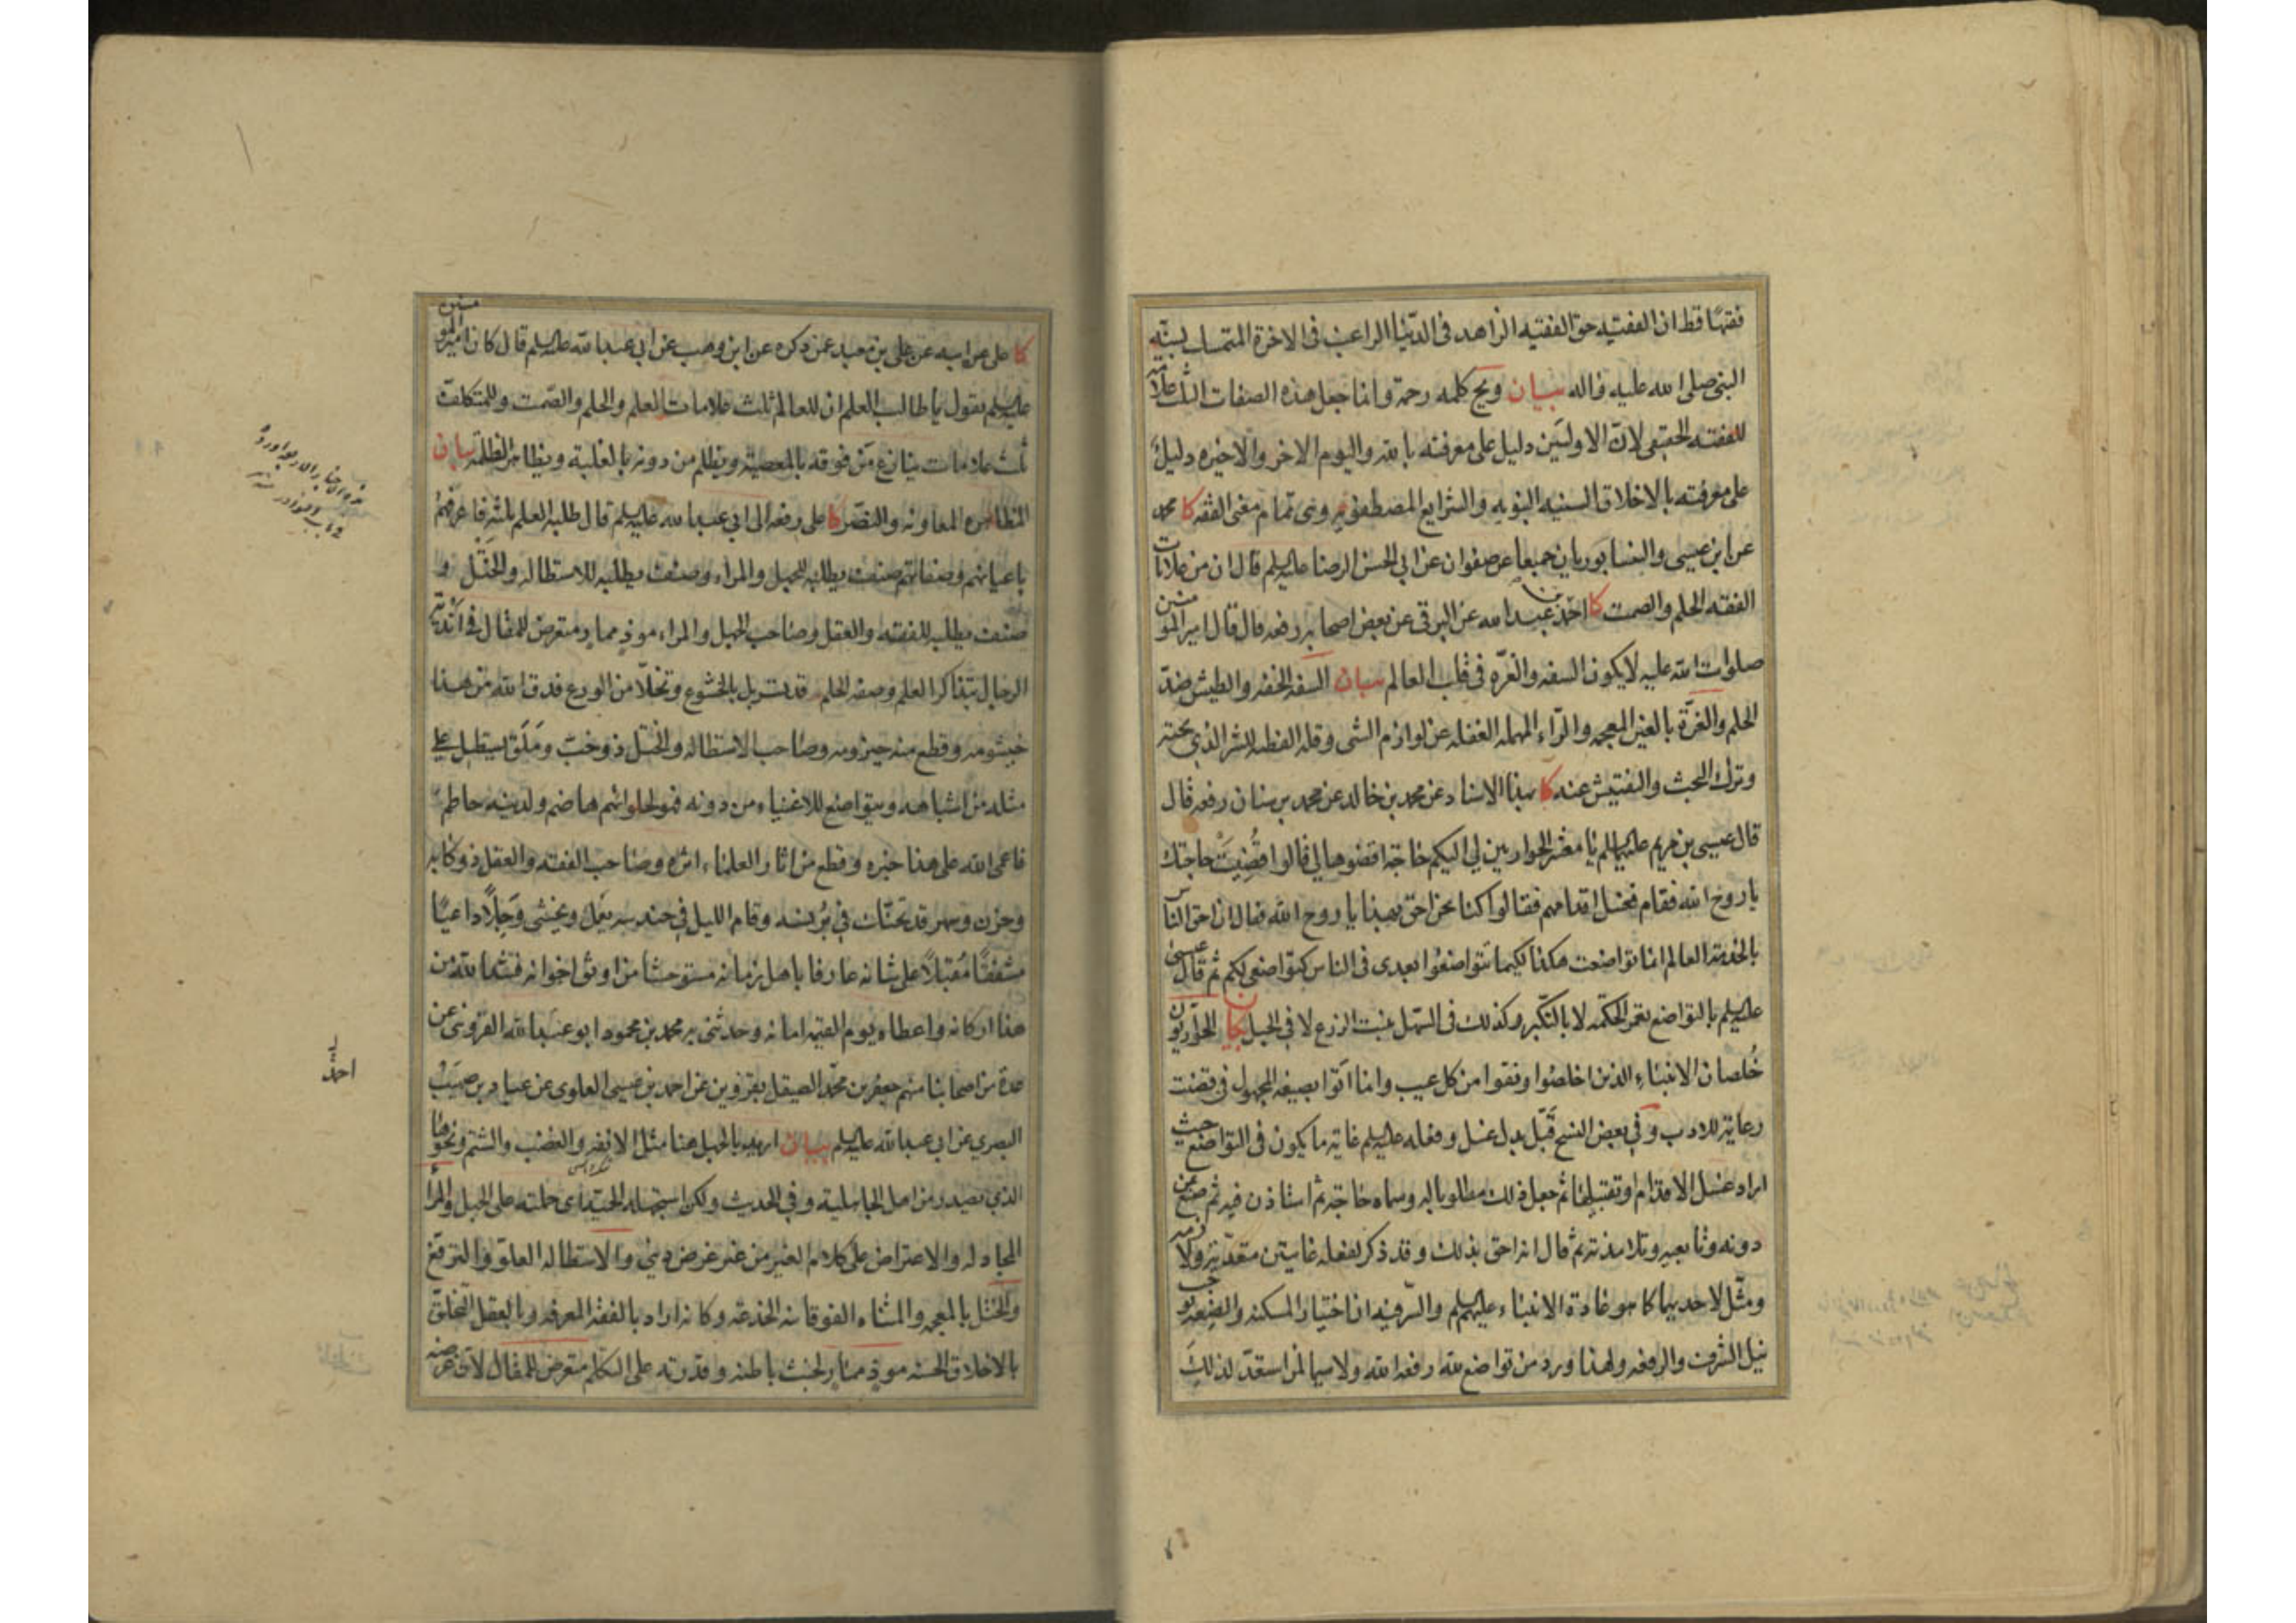 فقيهًا قط ان الفقيه حق الفقيه الزاهد فى الدنيا الراغب فى الاخرة المتمسك بسنة
النبى صلى الله عليه واله بيان ويح كلمه رحمة وانما جعل هذه الصفات الثلث علامة
للفقيه الحقيقى لان الاوليين دليل على معرفته بالله واليوم الاخر والاخيره دليل
على معرفته بالاخلاق السنيه النبويه والشرايع المصطفويه وهى تمام معنى الفقه كا محمد
عن ابن عيسى والنيسابوريان جميعا عن صفوان عن ابى الحسن الرضا عليه السلم قال ان من علامات
الفقه الحلم والصمت كا احمد بن عبد الله عن البرقى عن بعض اصحابه رفعه قال قال امير المؤمنين
صلوات الله عليه لا يكون السفه والغره فى قلب العالم بيان السفه الخفه والطيش ضد
الحلم والغرة بالغين المعجمه والراء المهمله الغفله عن لوازم الشى وقله الفطنه للشر الذى تحته
وترك البحث والتفتيش عنه كا بهذا الاسناد عن محمد بن خالد عن محمد بن سنان رفعه قال
قال عيسى بن مريم عليهما السلم يا معشر الحواريين لى اليكم حاجة اقضوها لى قالوا قضيت حاجتك
يا روح الله فقام فغسل اقدامهم فقالوا كنا نحن احق بهذا يا روح الله فقال ان احق الناس
بالخدمة العالم انما تواضعت هكذا لكيما تتواضعوا بعدى فى الناس كتواضعى لكم ثم قال عيسى
عليه السلم بالتواضع تعمر الحكمه لا بالتكبر وكذلك فى السهل ينبت الزرع لا فى الجبل بيان الحواريون
خلصان الانبياء الذين اخلصوا ونقوا من كل عيب وانما اتوا بصيغه المجهول فى قضيت
رعاية للادب وفى بعض النسخ قبل بدل غسل وفعله عليه السلم غاية ما يكون فى التواضع حيث
اراد غسل الاقدام او تقبيلها ثم جعل ذلك مطلوبا له وسماه حاجة ثم استاذن فيه ثم صنع من
دونه وتابعيه وتلامذته ثم قال انه احق بذلك وقد ذكر لفعله غايتين متعديه ولازمه
ومثل لاحديهما كما هو عادة الانبياء عليهم السلم والسر فيه ان اختيار المسكنه والضعه يوجب
نيل الشرف والرفعه ولهذا ورد من تواضع لله رفعه الله ولا سيما لمن استعد لذلك
كا على عن ابيه عن على بن معبد عمن ذكره عن ابن وهب عن ابى عبد الله عليه السلم قال كان امير المؤمنين
عليه السلم يقول يا طالب العلم ان للعالم ثلث علامات العلم والحلم والصمت وللمتكلف
ثلث علامات ينازع من فوقه بالمعصية ويظلم من دونه بالغلبة ويظاهر الظلمة بيان
المظاهره المعاونه والنصر كا على رفعه الى ابى عبد الله عليه السلم قال طلبة العلم ثلثه فاعرفهم
باعيانهم وصفاتهم صنف يطلبه للجهل والمراء وصنف يطلبه للاستطاله والختل و
صنف يطلبه للفقه والعقل وصاحب الجهل والمراء موذ ممار متعرض للمقال فى اندية
الرجال بتذاكر العلم وصفه الحلم قد تسربل بالخشوع وتخلا من الورع فدق الله من هذا
خيشومه وقطع منه حيزومه وصاحب الاستطاله والختل ذو خب وملق يستطيل على
مثله من اشباهه ويتواضع للاغنياء من دونه فهو لحلوائهم هاضم ولدينه حاطم
فاعمى الله على هذا خبره وقطع من اثار العلماء اثره وصاحب الفقه والعقل ذو كابة
وحزن وسهر قد تحنك فى برنسه وقام الليل فى حندسه يعمل ويخشى وجلًا داعيًا
مشفقًا مقبلًا على شانه عارفا باهل زمانه مستوحشا من اوثق اخوانه فشد الله من
هذا اركانه واعطاه يوم القيمه امانه وحدثنى به محمد بن محمود ابو عبد الله القزوينى عن
عدة من اصحابنا منهم جعفر بن محمد الصيقل بقزوين عن احمد بن عيسى العلوى عن عباد بن صهيب
البصرى عن ابى عبد الله عليه السلم بيان اريد بالجهل هنا مثل الانفه والغضب والشتم ونحوها
الذى يصدر من اهل الجاهلية وفى الحديث ولكن استجهلته الحمية اى حملته على الجهل والمراء
المجادله والاعتراض على كلام الغير من غير غرض دينى والاستطاله العلو والترفع
والختل بالمعجمه والمثناه الفوقانيه الخدعه وكانه اراد بالفقه المعرفه وبالعقل التخلق
بالاخلاق الحسنه موذ ممار لخبث باطنه وقدرته على التكلم متعرض للمقال لان غرضه
احمد